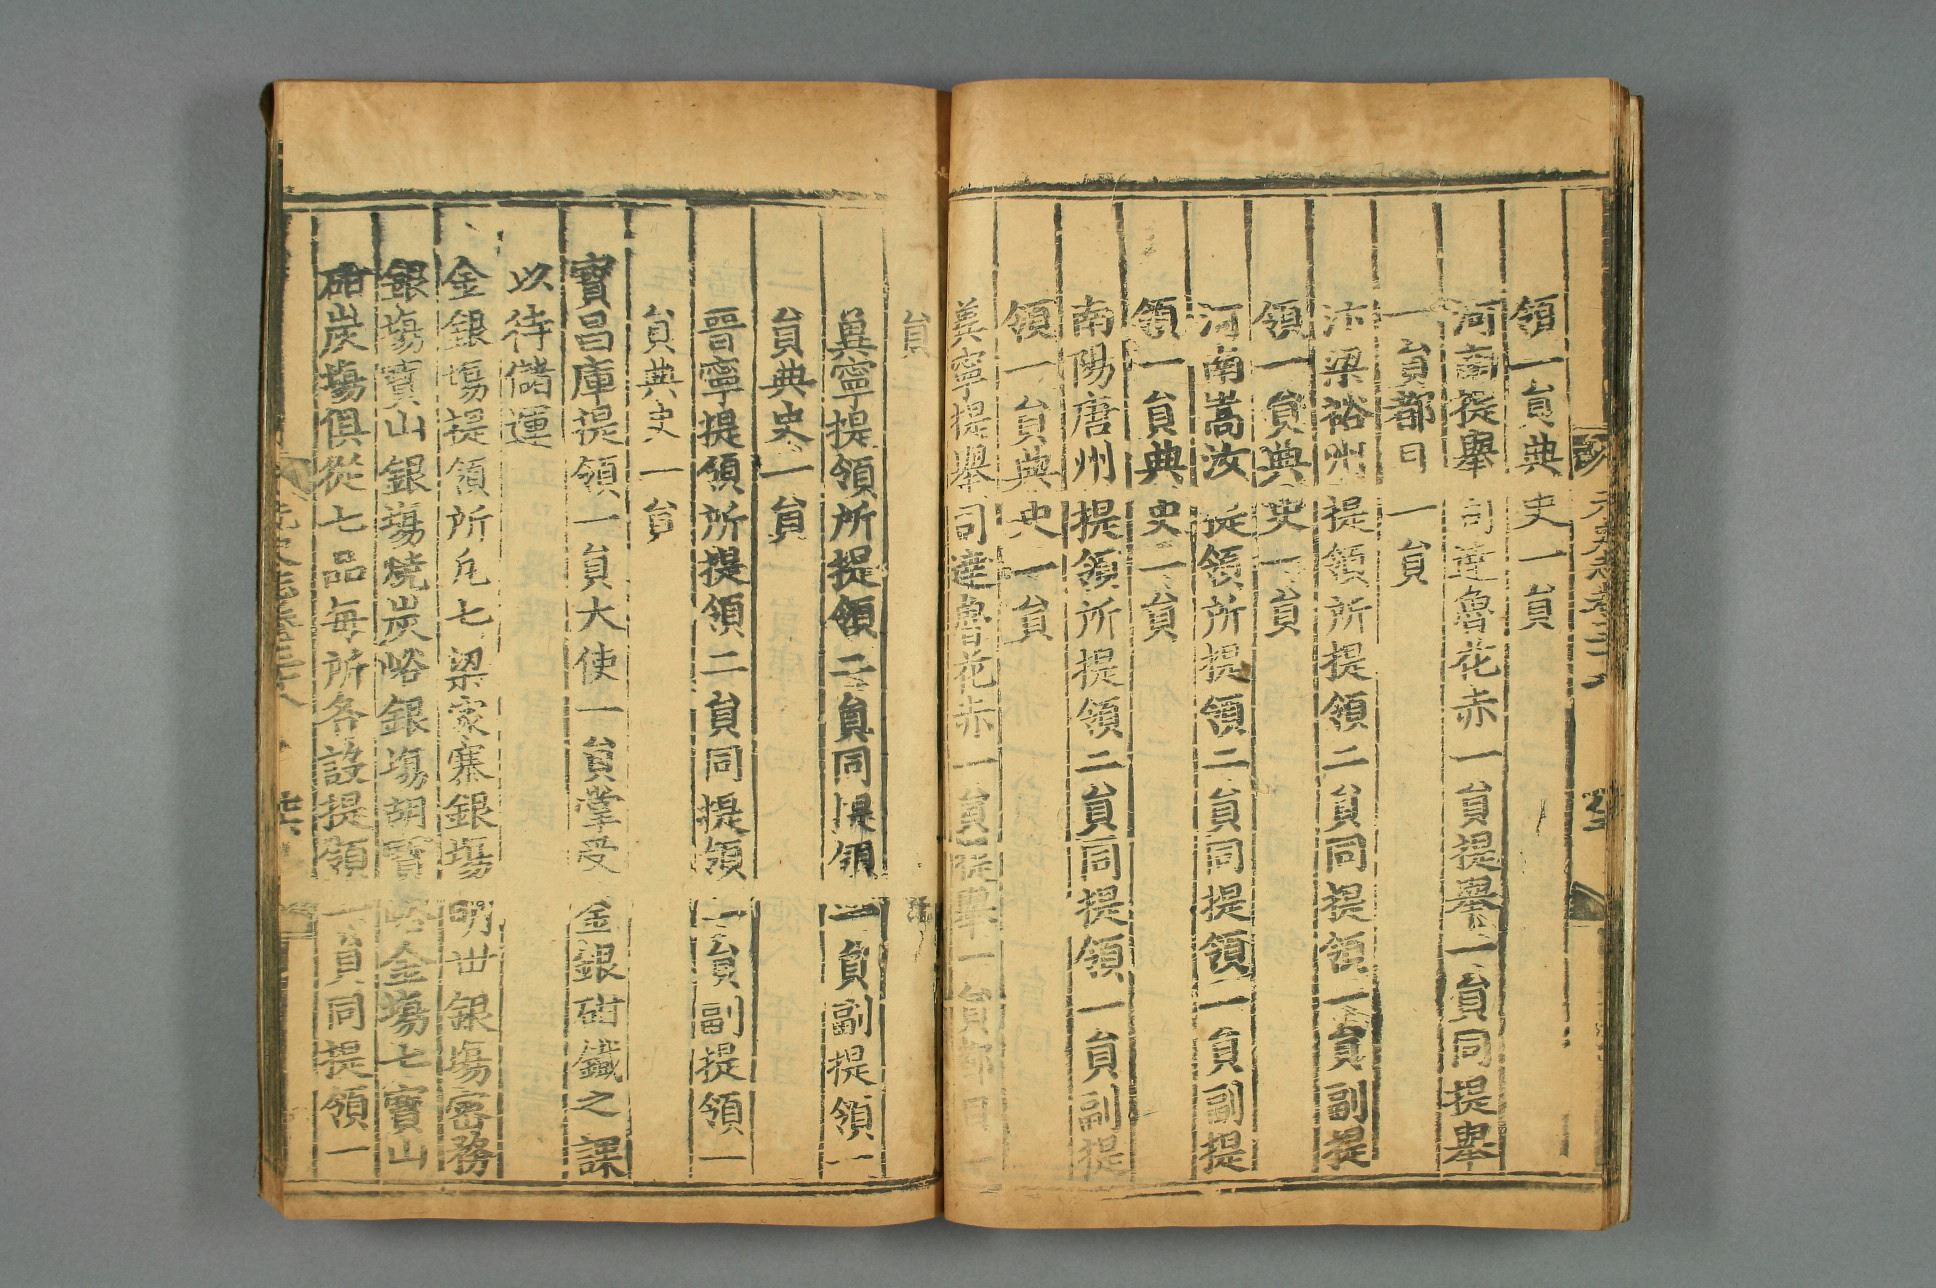 元史志卷三十八
領一員典史一員
河南提舉司達魯花赤一員提舉一員同提舉
一員都目一員
汴梁裕州提領所提領二員同提領一員副提
領一員典史一員
河南嵩汝提領所提領二員同提領一員副提
領一員典史一員
南陽唐州提領所提領二員同提領一員副提
領一員典史一員
冀寧提舉司達魯花赤一員提舉一員都目一
員
冀寧提領所提領二員同提領一員副提領一
員典史一員
晉寧提領所提領二員同提領一員副提領一
員典史一員
寶昌庫提領一員大使一員掌受金銀鉗鐵之課
以待儲運
金銀場提領所凡七梁家寨銀場明世銀場密務
銀場寶山銀場燒炭峪銀場胡寶峪金場七寶山
鉗炭場俱從七品每所各設提領一員同提領一
元史志卷三十八